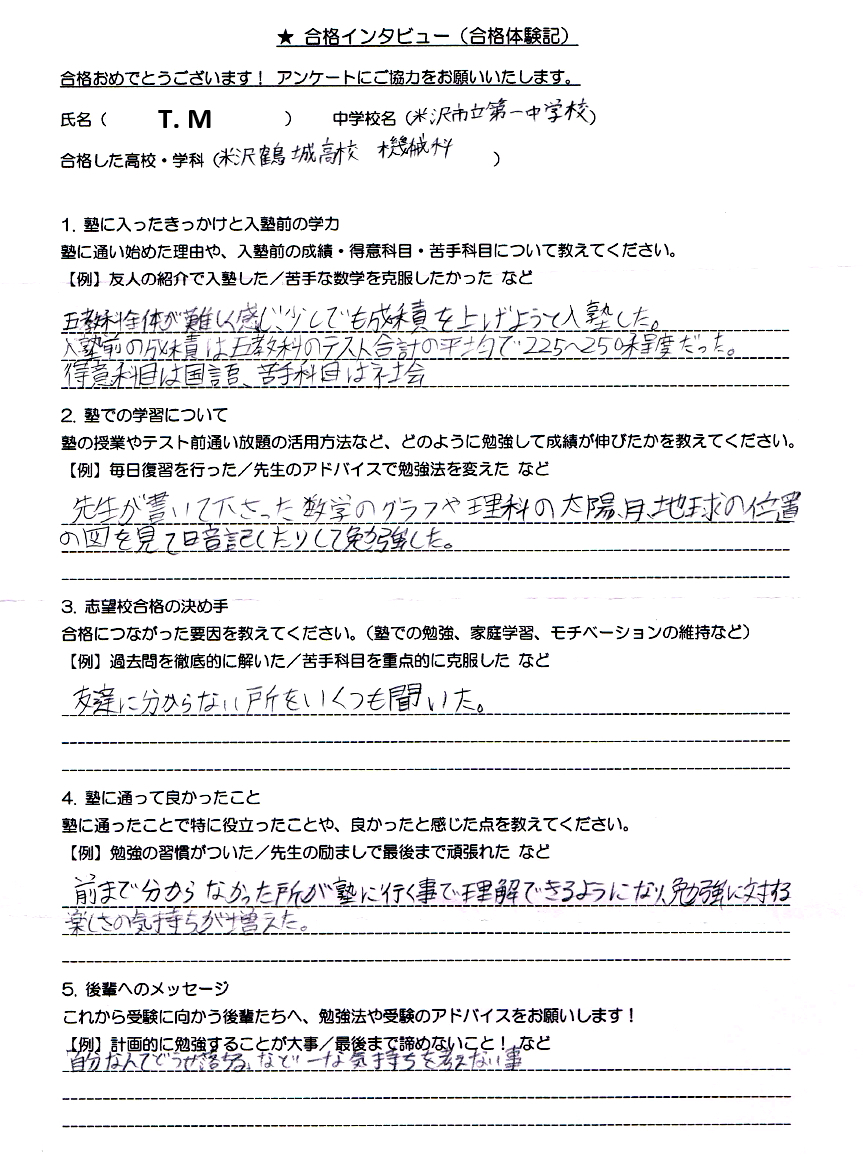 ★ 合格インタビュー（合格体験記）
合格おめでとうございます！ アンケートにご協力をお願いいたします。
氏名（ T.M ） 中学校名（米沢市立第一中学校）
合格した高校・学科（米沢鶴城高校 機械科 ）
1. 塾に入ったきっかけと入塾前の学力
塾に通い始めた理由や、入塾前の成績・得意科目・苦手科目について教えてください。
【例】友人の紹介で入塾した／苦手な数学を克服したかった など
五教科全体が難しく感じ、少しでも成積を上げようて入塾した。
入塾前の成積は五教科のテスト合計の平均で225〜250程度だった。
得意科目は国語、苦手科目は社会
2. 塾での学習について
塾の授業やテスト前通い放題の活用方法など、どのように勉強して成績が伸びたかを教えてください。
【例】毎日復習を行った／先生のアドバイスで勉強法を変えた など
先生が書いて下さった数学のグラフや理科の太陽、月、地球の位置
の図を見て暗記したりして勉強した。
3. 志望校合格の決め手
合格につながった要因を教えてください。（塾での勉強、家庭学習、モチベーションの維持など）
【例】過去問を徹底的に解いた／苦手科目を重点的に克服した など
友達に分からない所をいくつも聞いた。
4. 塾に通って良かったこと
塾に通ったことで特に役立ったことや、良かったと感じた点を教えてください。
【例】勉強の習慣がついた／先生の励ましで最後まで頑張れた など
前まで分からなかった所が塾に行く事で理解できるようになり、勉強に対する
楽しさの気持ちが増えた。
5. 後輩へのメッセージ
これから受験に向かう後輩たちへ、勉強法や受験のアドバイスをお願いします！
【例】計画的に勉強することが大事／最後まで諦めないこと！ など
自分なんてどうせ落ちる、など な気持ちを考えない事